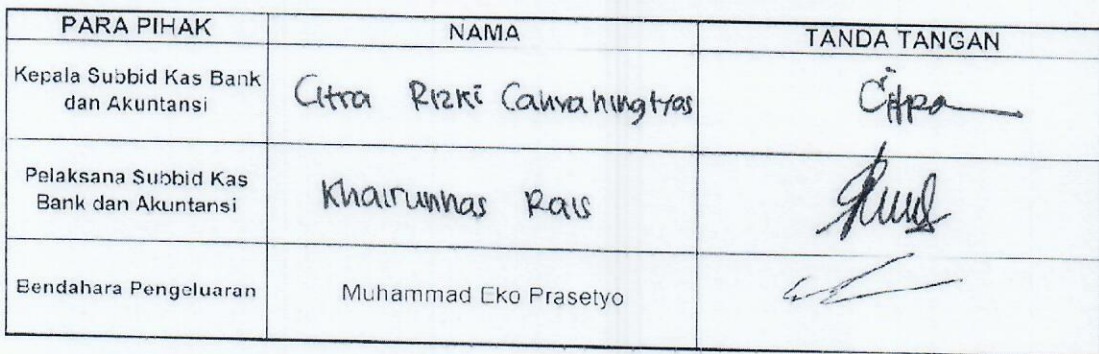 PARA PIHAK NAMA TANDA TANGAN
Kepala Subbid Kas Bank
dan Akuntansi
Citra Rizki Cahyahingtyas
Citra
Pelaksana Subbid Kas
Bank dan Akuntansi
Khairunnas Rais
Bendahara Pengeluaran
Muhammad Eko Prasetyo